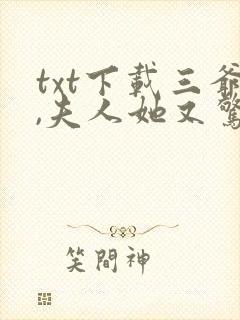 txt下載三爺
,夫人她又驚
笑間神